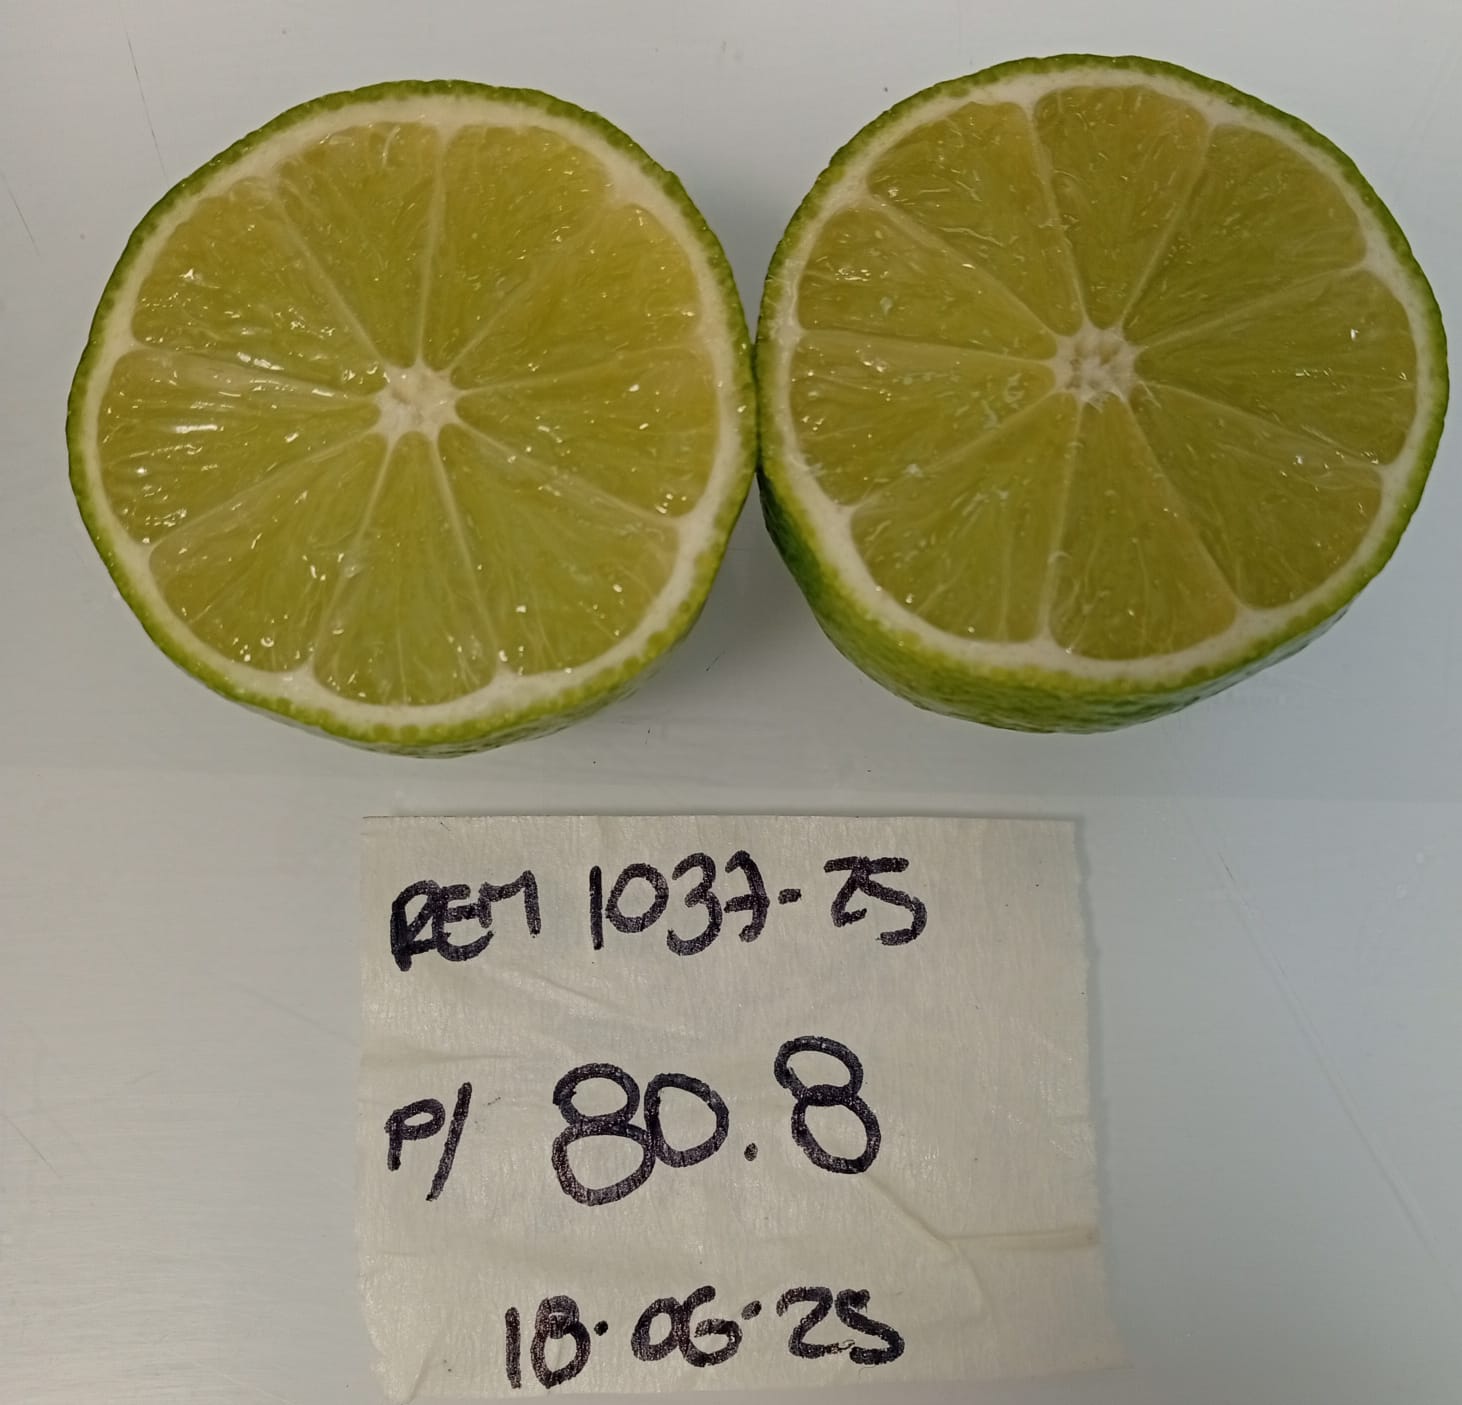 REM 1037-25
P/ 80.8
18.06.25